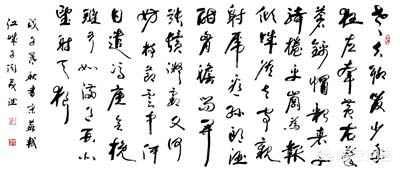 老夫聊發少年
狂左牽黃右擎
蒼錦帽貂裘千
騎卷平岡為報
傾城隨太守親
射虎看孫郎酒
酣胸膽尚開
鬢微霜又何
妨持節雲中何
日遣馮唐會挽
雕弓如滿月西北
望射天狼
戊子書東坡
江城子